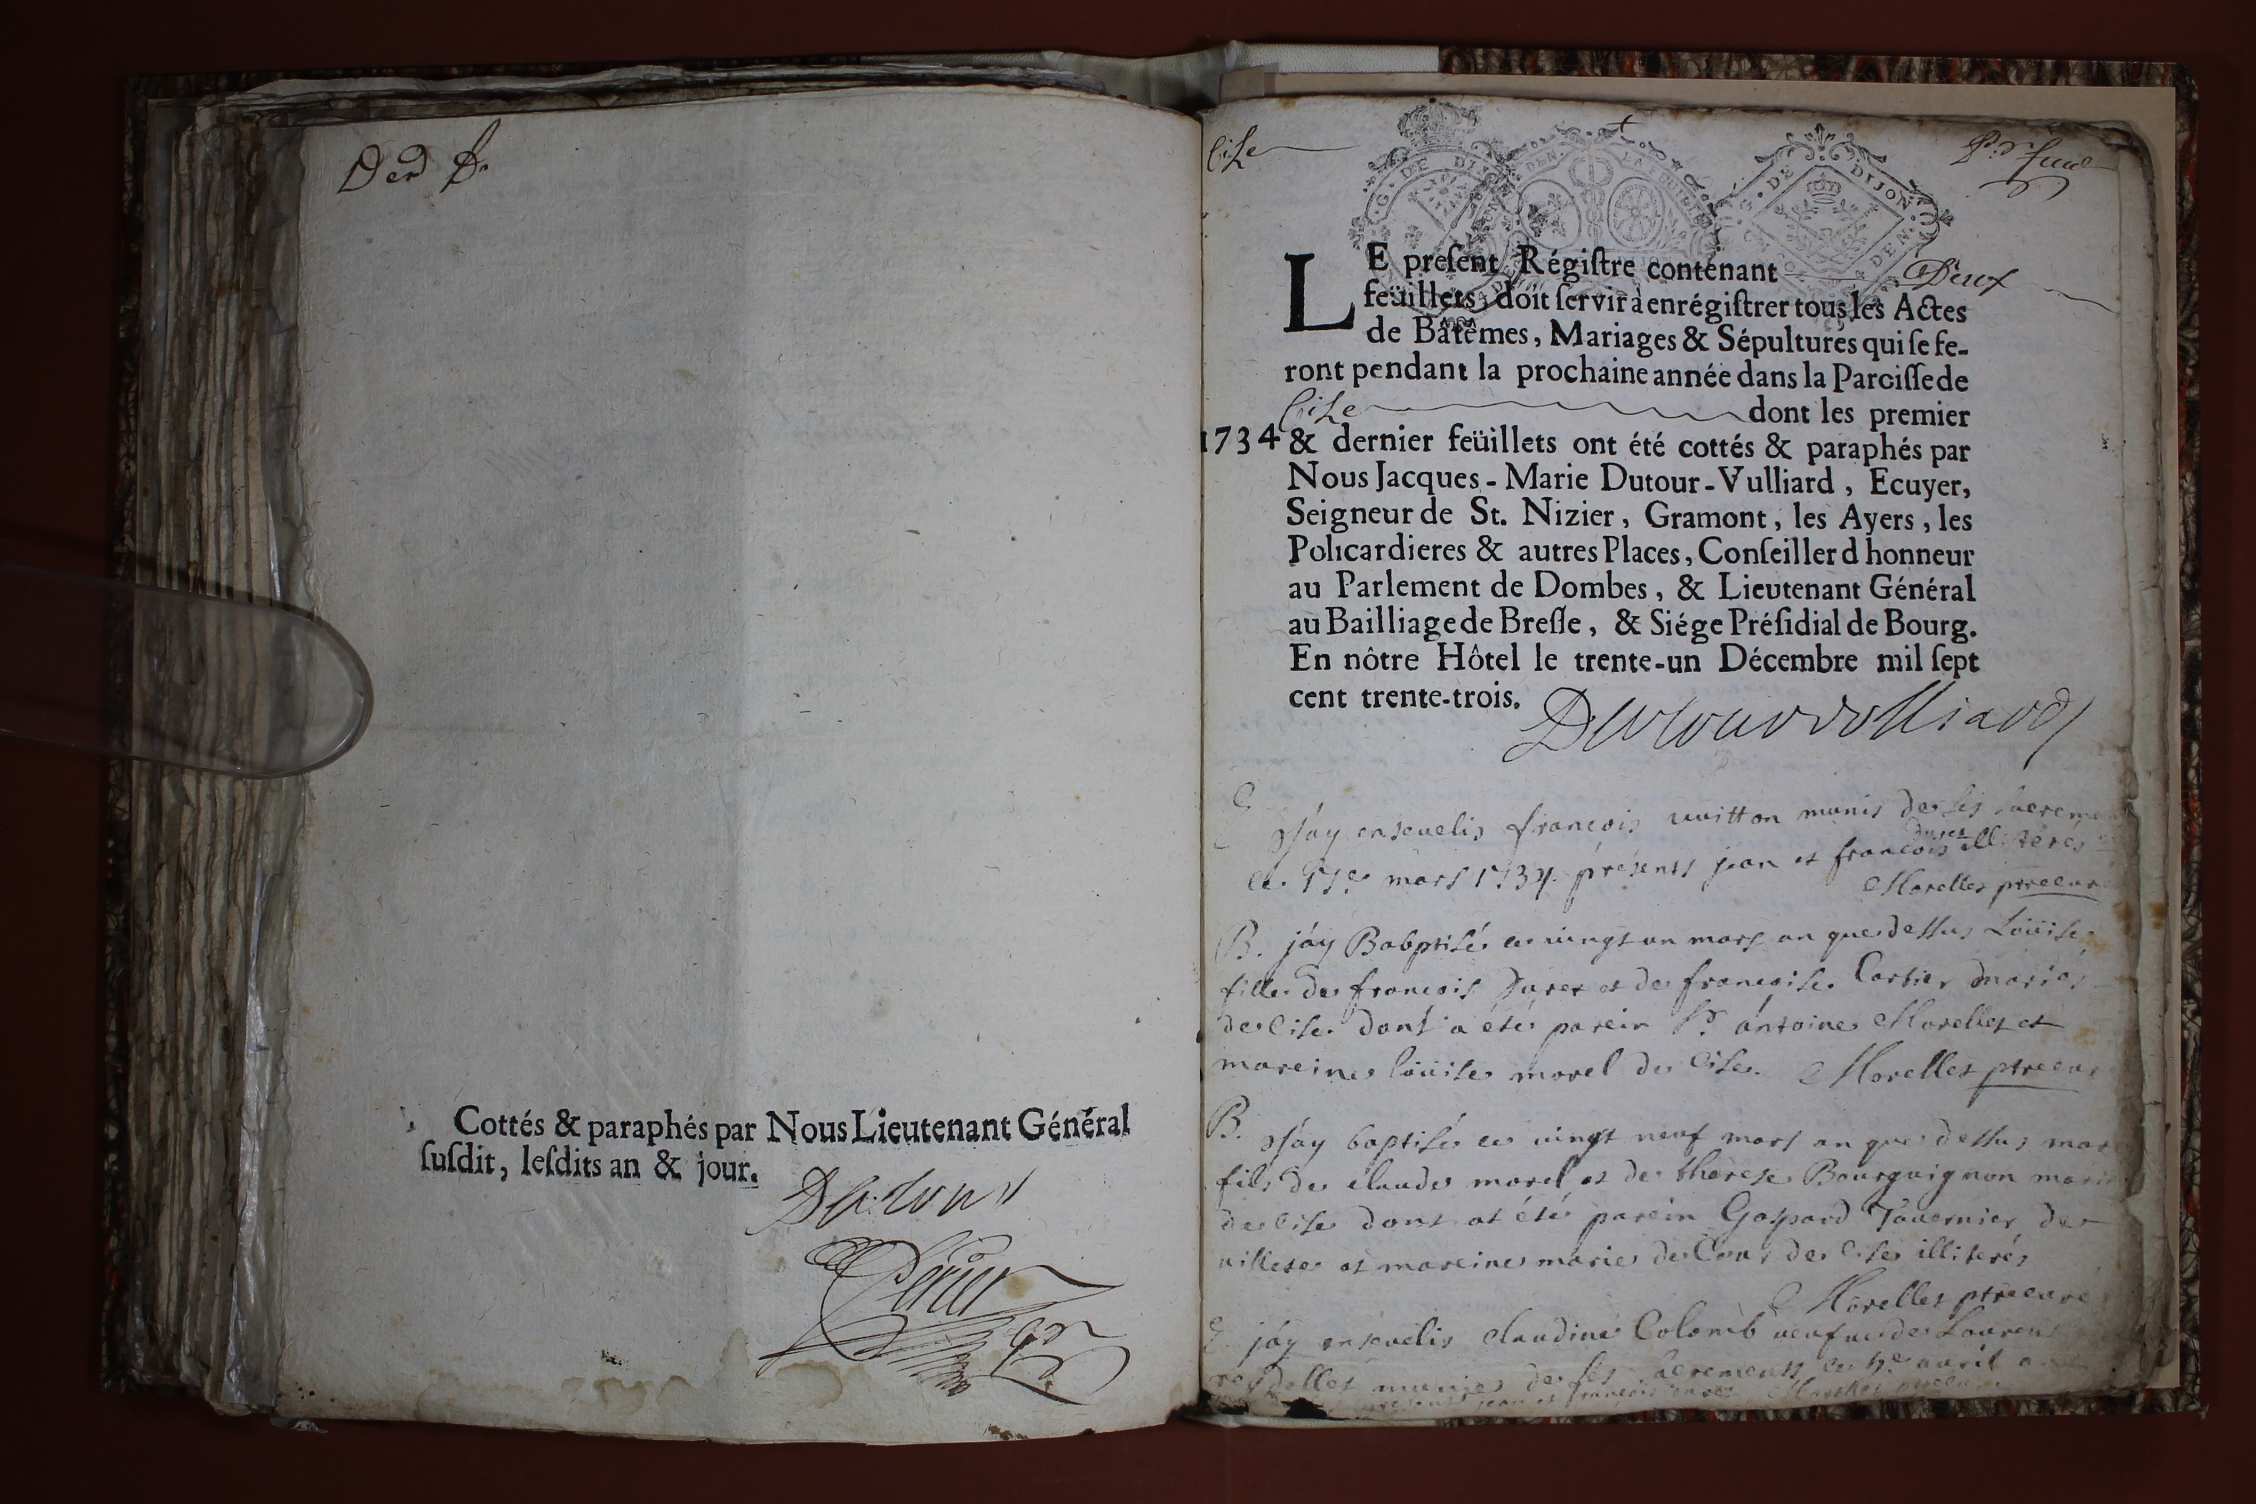 Cottés & paraphés par Nous Lieutenant Général
ſuſdit, leſdits an & jour.
Dutour
Cize
G. DE DIJON
DE DIJON
LE preſent Régiſtre contenant Deux
feüillets, doit ſervir à enrégiſtrer tous les Actes
de Bâtêmes, Mariages & Sépultures qui ſe fe-
ront pendant la prochaine année dans la Paroiſſe de
Cize dont les premier
1734 & dernier feüillets ont été cottés & paraphés par
Nous Jacques-Marie Dutour-Vulliard, Ecuyer,
Seigneur de St. Nizier, Gramont, les Ayers, les
Policardieres & autres Places, Conſeiller d honneur
au Parlement de Dombes, & Lieutenant Général
au Bailliage de Breſſe, & Siége Préſidial de Bourg.
En nôtre Hôtel le trente-un Décembre mil ſept
cent trente-trois.
Dutourvolliard
E
J'ay ensevelis francois vuitton munis de ses sacremen
ce mars 1734 présents jean et francois durez illiterés
Morellet ptre curé
B. jáy Babptisé ce vingt un mars an que dessus Loüise
fille de francois Durez et de françoise Cartier mariés
de Cise dont a été parein Sr. antoine Morellet et
mareine loüise morel de Cise. Morellet ptre curé
B. J'ay baptisé ce vingt neuf mars an que dessus
fils de claude morel et de thérese Bourguignon mariés
de Cise dont at été parein Gaspard Tavernier de
villete et mareine marie de Cise illiterés
Morellet ptre curé
E. jáy ensevelis claudine Colomb veufue de Laurent
munie de ses sacrements ce avril
présents jean et françois durez Morellet ptre curé